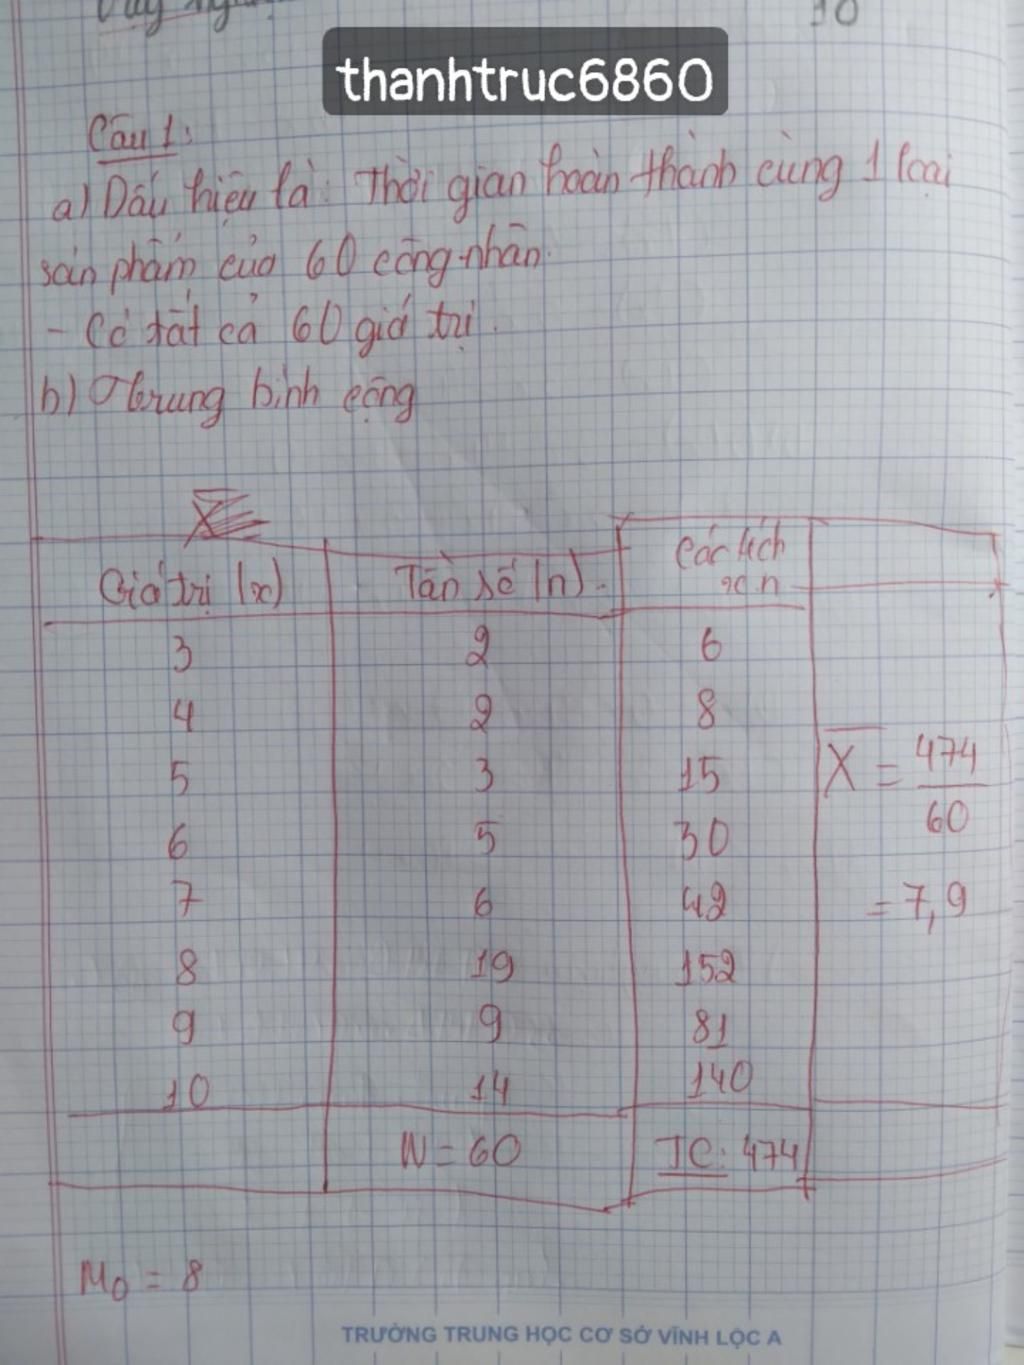 10
thanhtruc6860
Câu 1:
a) Dấu hiệu là: Thời gian hoàn thành cùng 1 loại
sản phẩm của 60 công nhân.
- Có tất cả 60 giá trị.
b) Trung bình cộng
Giá trị (x) Tần số (n) Các tích x.n
3 2 6
4 2 8
5 3 15
6 5 30
7 6 42
8 19 152
9 9 81
10 14 140
X̅ = 474/60
= 7,9
N = 60 TC: 474
M₀ = 8
TRƯỜNG TRUNG HỌC CƠ SỞ VĨNH LỘC A